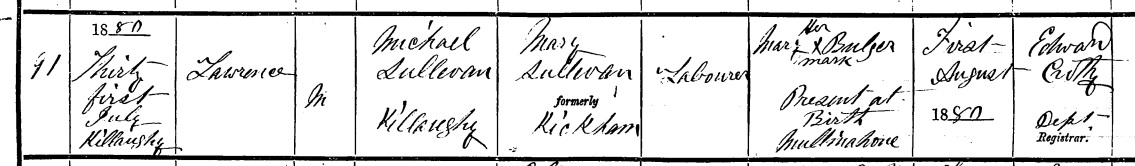 91
1880
Thirty
first
July
Killaughy
Lawrence
M
Michael
Sullivan
Killaughy
Mary
Sullivan
formerly
Kickham
Labourer
Her
Mary X Bulger
mark
Present at
Birth
Mullinahone
First
August
1880
Edward
Crotty
Dept
Registrar.